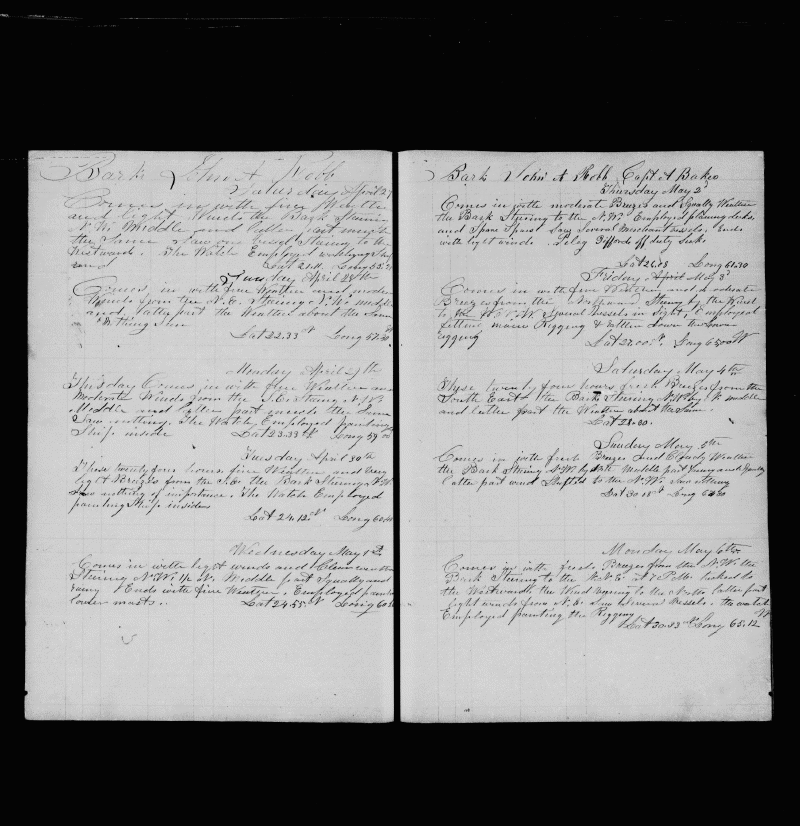 Bark John A Robb
Saturday April 27
Comes in with fine Weather
and light Winds the Bark Steering
N.W. Middle and latter part much
the Same Saw one vessel Steering to the
Westward. The Watch Employed
Lat 21.11 Long 55.
Sunday April 28th
Comes in with fine Weather and moderate
Winds from the N.E. Steering N.W. middle
and latter part the Weather about the Same
nothing Seen
Lat 22.33 N Long 57.30
Monday April 29th
This day Comes in with fine Weather and
Moderate Winds from the S.E. Steering N.W.
Middle and latter part much the Same
Saw nothing. The Watch Employed painting
Ship inside Lat 23.33 N Long 59.00
Tuesday April 30th
These twenty four hours fine Weather and very
light Breezes from the S.E. the Bark Steering N.W.
Saw nothing of importance. The Watch Employed
painting Ship insides
Lat 24.12 N Long 60.
Wednesday May 1st
Comes in with light winds and Clear weather
Steering N.W. 1/2 N. Middle part Squally and
rainy Ends with fine Weather. Employed painting
lower masts. Lat 24.55 N Long 60.
Bark John A Robb Capt A Baker
Thursday May 2d
Comes in with moderate Breezes and Squally Weather
the Bark Steering to the N.W. Employed planing decks
and Spare Spars Saw Several Merchant vessels. Ends
with light winds. Selay Gifford off duty Sick
Lat 26.08 Long 61.30
Friday April May 3d
Comes in with fine Weather and moderate
Breezes from the Steering by the Wind
to the W.N.W. Several vessels in Sight, Employed
fitting main Rigging & rattling down the lower
rigging Lat 27.00 N. Long 65.00 W
Saturday May 4th
These twenty four hours fresh Breezes from the
South East the Bark Steering N.W. by N middle
and latter part the Weather about the Same.
Lat 28.30.
Sunday May 5th
Comes in with fresh Breezes and Cloudy Weather
the Bark Steering N.W. by N Middle part rainy and Squally
latter part wind Shifted to the N.W. Saw
Lat 30.18 N Long 64.30
Monday May 6th
Comes in with fresh Breezes from the N.W. the
Bark Steering to the N.N.E. At 7 P.M. tacked to
the Westward the Wind veering to the North latter part
light winds from N.E. Saw Several Vessels. the watch
Employed painting the Rigging
Lat 30.53 N Long 65.12